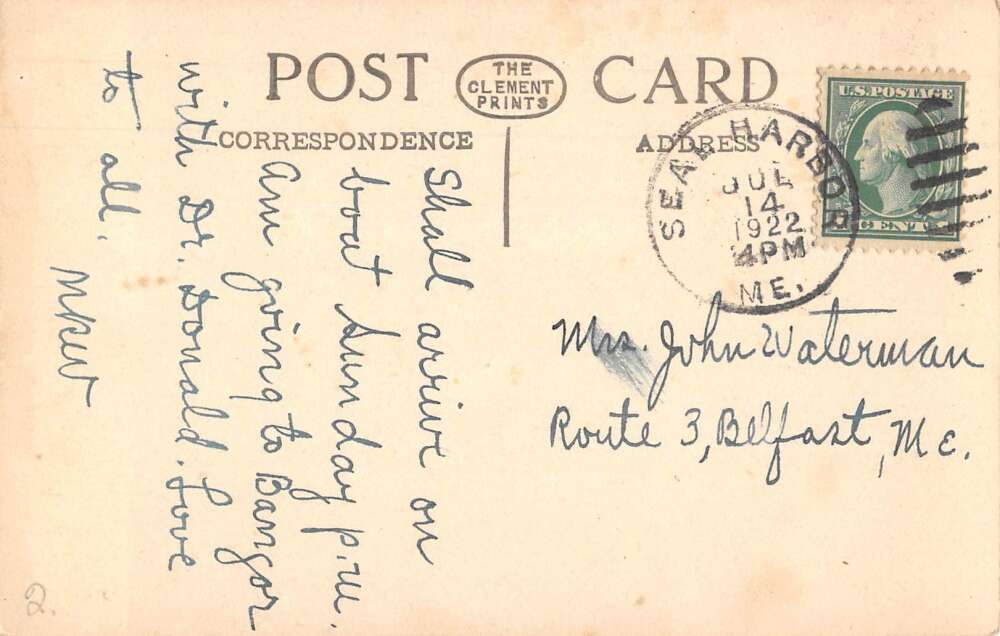 POST CARD
THE
CLEMENT
PRINTS
CORRESPONDENCE
ADDRESS
U.S. POSTAGE
SEAL HARBOR
JUL
14
1922
4PM
ME.
Shall arrive on
boat Sunday p.m.
Am going to Bangor
with Dr. Donald. Love
to all.
MKW
Mrs. John Waterman
Route 3, Belfast, Me.
2.